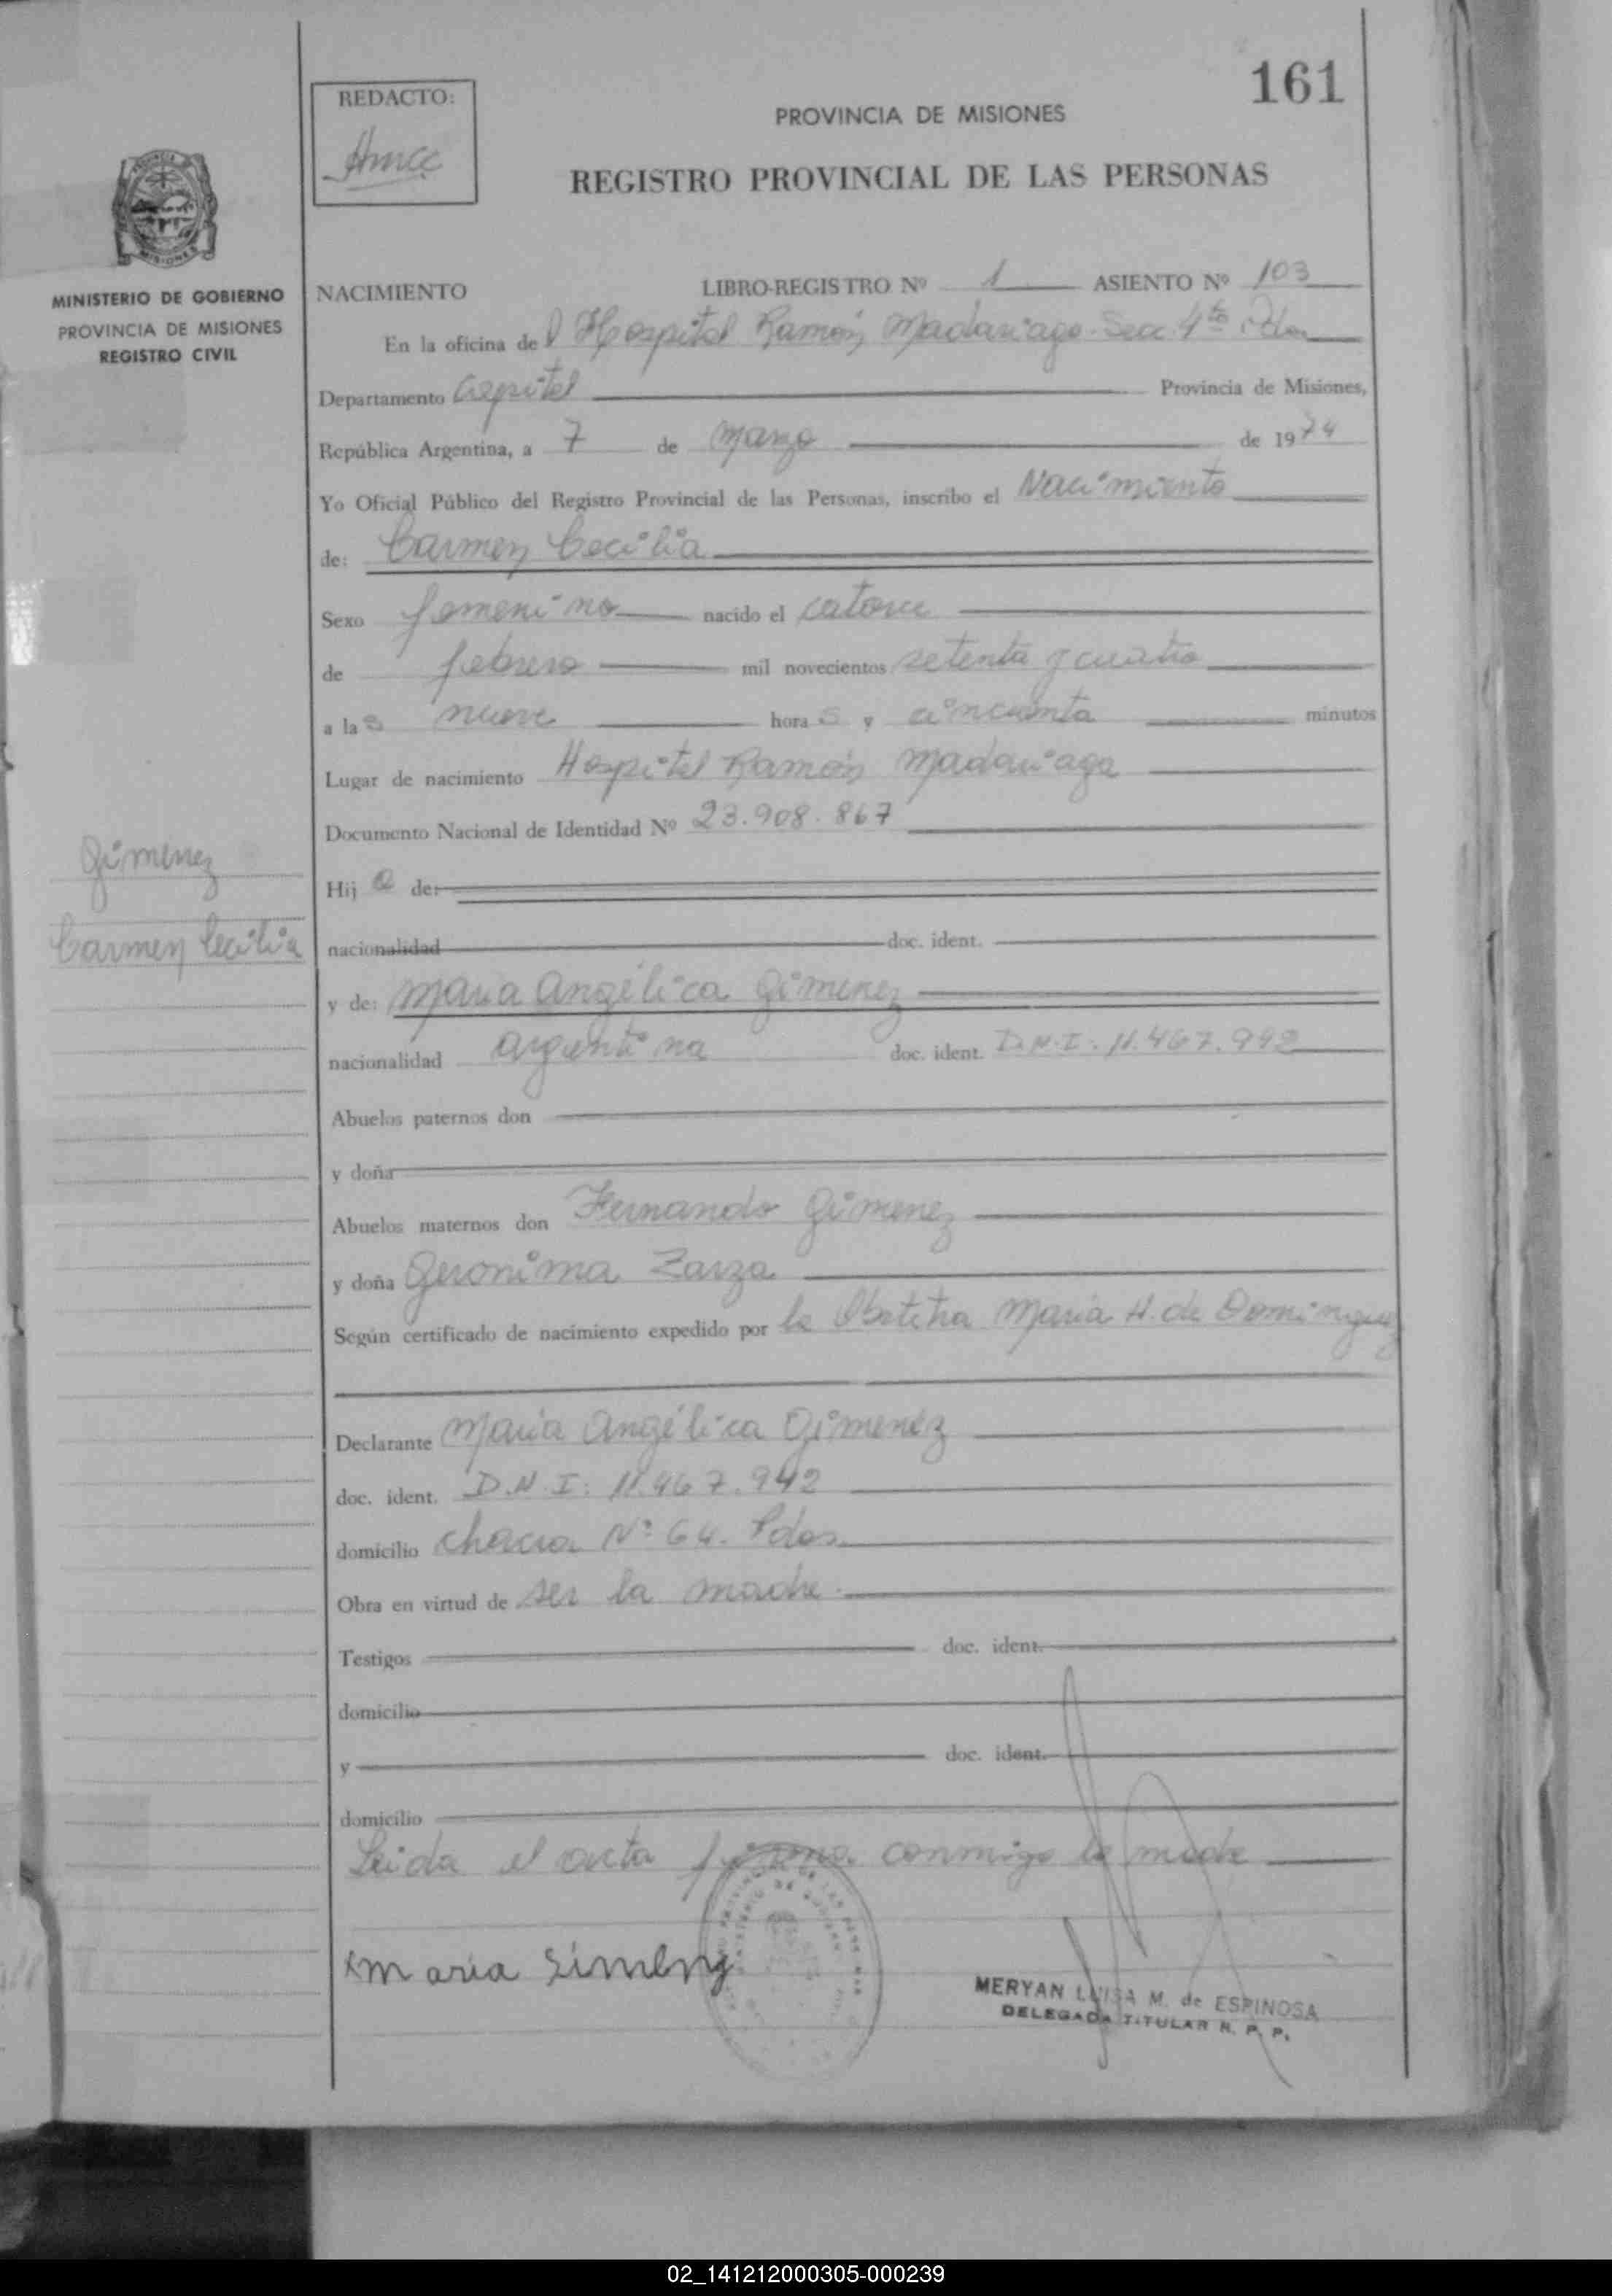 161
REDACTO:
PROVINCIA DE MISIONES
REGISTRO PROVINCIAL DE LAS PERSONAS
MINISTERIO DE GOBIERNO
PROVINCIA DE MISIONES
REGISTRO CIVIL
NACIMIENTO LIBRO-REGISTRO Nº 1 ASIENTO Nº 103
En la oficina del Hospital Ramón Madariaga Sec. 4ta Pdas
Departamento Capital Provincia de Misiones,
República Argentina, a 7 de marzo de 1974
Yo Oficial Público del Registro Provincial de las Personas, inscribo el Nacimiento
de: Carmen Cecilia
Sexo femenino nacido el catorce
de febrero mil novecientos setenta y cuatro
a las nueve horas y cincuenta minutos
Lugar de nacimiento Hospital Ramón Madariaga
Documento Nacional de Identidad Nº 23.908.867
Gimenez
Carmen Cecilia
Hija de:
nacionalidad doc. ident.
y de: Maria Angélica Gimenez
nacionalidad argentina doc. ident. D.N.I. 11.467.942
Abuelos paternos don
y doña
Abuelos maternos don Fernando Gimenez
y doña Geronima Zarza
Según certificado de nacimiento expedido por la Obstetra Maria H. de Dominguez
Declarante Maria Angélica Gimenez
doc. ident. D.N.I. 11.467.942
domicilio chacra Nº 64. Pdas.
Obra en virtud de ser la madre.
Testigos doc. ident.
domicilio
y doc. ident.
domicilio
Leida el acta firma conmigo la madre
maria
MERYAN LUISA M. de ESPINOSA
DELEGADA TITULAR R. P. P.
02_141212000305-000239